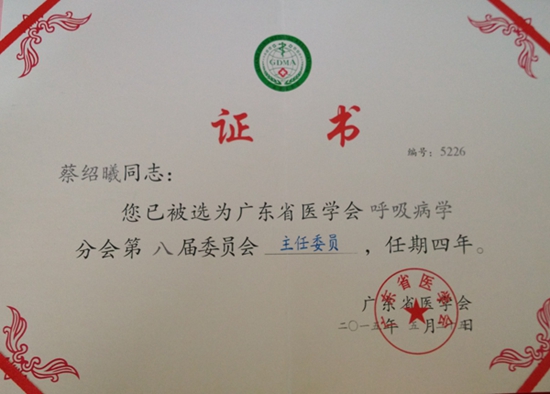 GDMA
证书
编号：5226
蔡绍曦同志：
您已被选为广东省医学会呼吸病学
分会第八届委员会主任委员，任期四年。
广东省医学会
二〇一五年五月